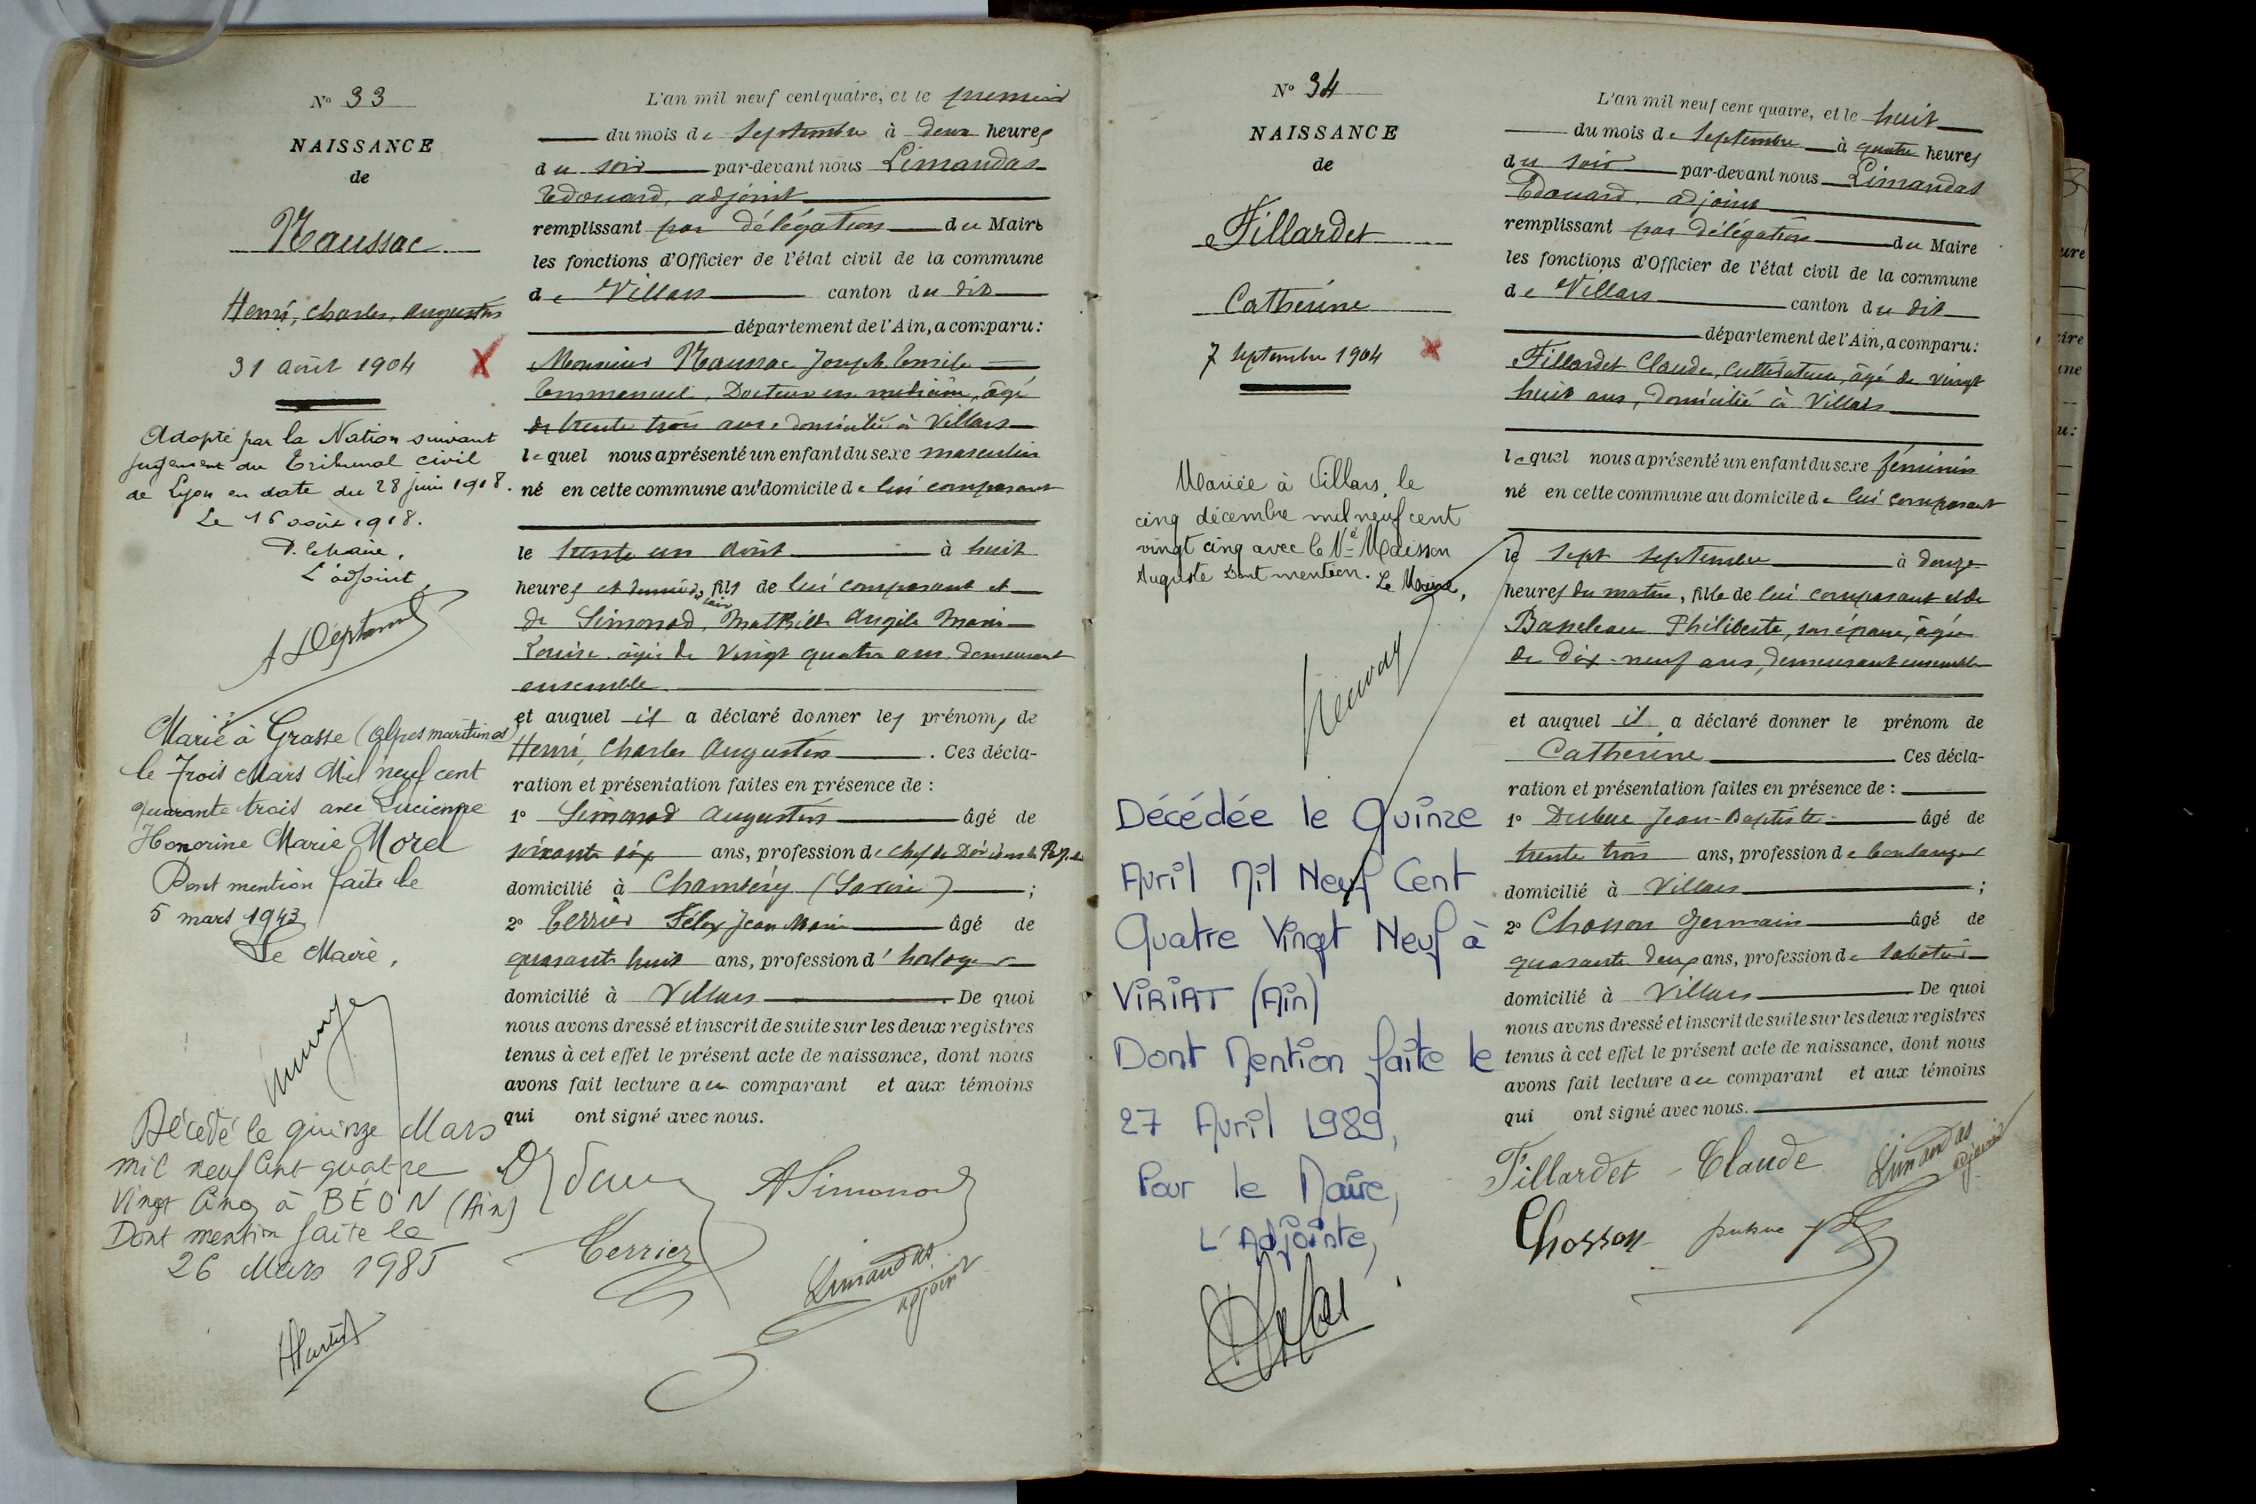 N° 33
NAISSANCE
de
Henri, Charles, Augustin
31 août 1904
Adopté par la Nation suivant
jugement du Tribunal civil
de Lyon en date du 28 juin 1918.
Le 16 août 1918.
P. le Maire,
L'adjoint,
Marié à Grasse (Alpes maritimes)
le Trois Mars Mil neuf cent
quarante trois avec Lucienne
Honorine Marie Morel
Dont mention faite le
5 mars 1943
Le Maire,
Décédé le quinze Mars
mil neuf Cent quatre
Vingt Cinq à BÉON (Ain)
Dont mention faite le
26 Mars 1985
L'an mil neuf cent quatre, et le premier
du mois de Septembre à deux heures
du soir par-devant nous Limandas
Edouard, adjoint
remplissant par délégation du Maire
les fonctions d'Officier de l'état civil de la commune
de Villars canton du dit
département de l'Ain, a comparu:
Monsieur Joseph Emile
Emmanuel, Docteur en médecine, âgé
de trente trois ans, domicilié à Villars
lequel nous a présenté un enfant du sexe masculin
né en cette commune au domicile de lui comparant
le trente un août à huit
heures et demie du soir, fils de lui comparant et
de Simonod, Mathilde Angèle Marie
Louise, âgée de vingt quatre ans, demeurant
ensemble
et auquel il a déclaré donner les prénoms de
Henri, Charles Augustin. Ces décla-
ration et présentation faites en présence de :
1° Simonod Augustin âgé de
soixante six ans, profession de chef de Division
domicilié à Chambéry (Savoie) ;
2° Terrier Félix Jean Marie âgé de
quarante huit ans, profession d'horloger
domicilié à Villars De quoi
nous avons dressé et inscrit de suite sur les deux registres
tenus à cet effet le présent acte de naissance, dont nous
avons fait lecture au comparant et aux témoins
qui ont signé avec nous.
A Simonod
Terrier
Limandas
adjoint
N° 34
NAISSANCE
de
Fillardet
Catherine
7 Septembre 1904
Mariée à Villars, le
cinq décembre mil neuf cent
vingt cinq avec le Sr Maisson
Auguste Dont mention. Le Maire,
Décédée le Quinze
Avril Mil Neuf Cent
Quatre Vingt Neuf à
VIRIAT (Ain)
Dont Mention faite le
27 Avril 1989,
Pour le Maire,
L'Adjointe,
L'an mil neuf cent quatre, et le huit
du mois de Septembre à quatre heures
du soir par-devant nous Limandas
Edouard, adjoint
remplissant par délégation du Maire
les fonctions d'Officier de l'état civil de la commune
de Villars canton du dit
département de l'Ain, a comparu:
Fillardet Claude, cultivateur, âgé de vingt
huit ans, domicilié à Villars
lequel nous a présenté un enfant du sexe féminin
né en cette commune au domicile de lui comparant
le sept septembre à douze
heures du matin, fille de lui comparant et de
Philiberte, son épouse, âgée
de dix-neuf ans, demeurant ensemble
et auquel il a déclaré donner le prénom de
Catherine Ces décla-
ration et présentation faites en présence de :
1° Dubuc Jean-Baptiste âgé de
trente trois ans, profession de boulanger
domicilié à Villars ;
2° Chosson Germain âgé de
quarante deux ans, profession de sabotier
domicilié à Villars De quoi
nous avons dressé et inscrit de suite sur les deux registres
tenus à cet effet le présent acte de naissance, dont nous
avons fait lecture au comparant et aux témoins
qui ont signé avec nous.
Fillardet Claude
Limandas
adjoint
Chosson